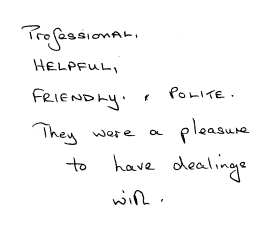 Professional,
HELPFUL,
FRIENDLY. & POLITE.
They were a pleasure
to have dealings
with.